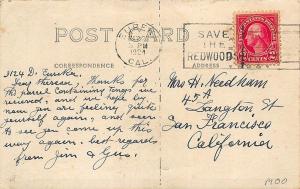 POST CARD
EUREKA
5 PM
1924
CAL.
SAVE
THE
REDWOODS
CENTS
CORRESPONDENCE
ADDRESS
3124 D. Eureka
Dear Theresa, Thanks for
the parcel containing Togs we
received, and we hope by
now you are feeling quite
yourself again, and soon
to see you come up this
way again, best regards
from Jim & Gus.
Mrs H. Needham
45 A
Langton St
San Francisco
California
1900